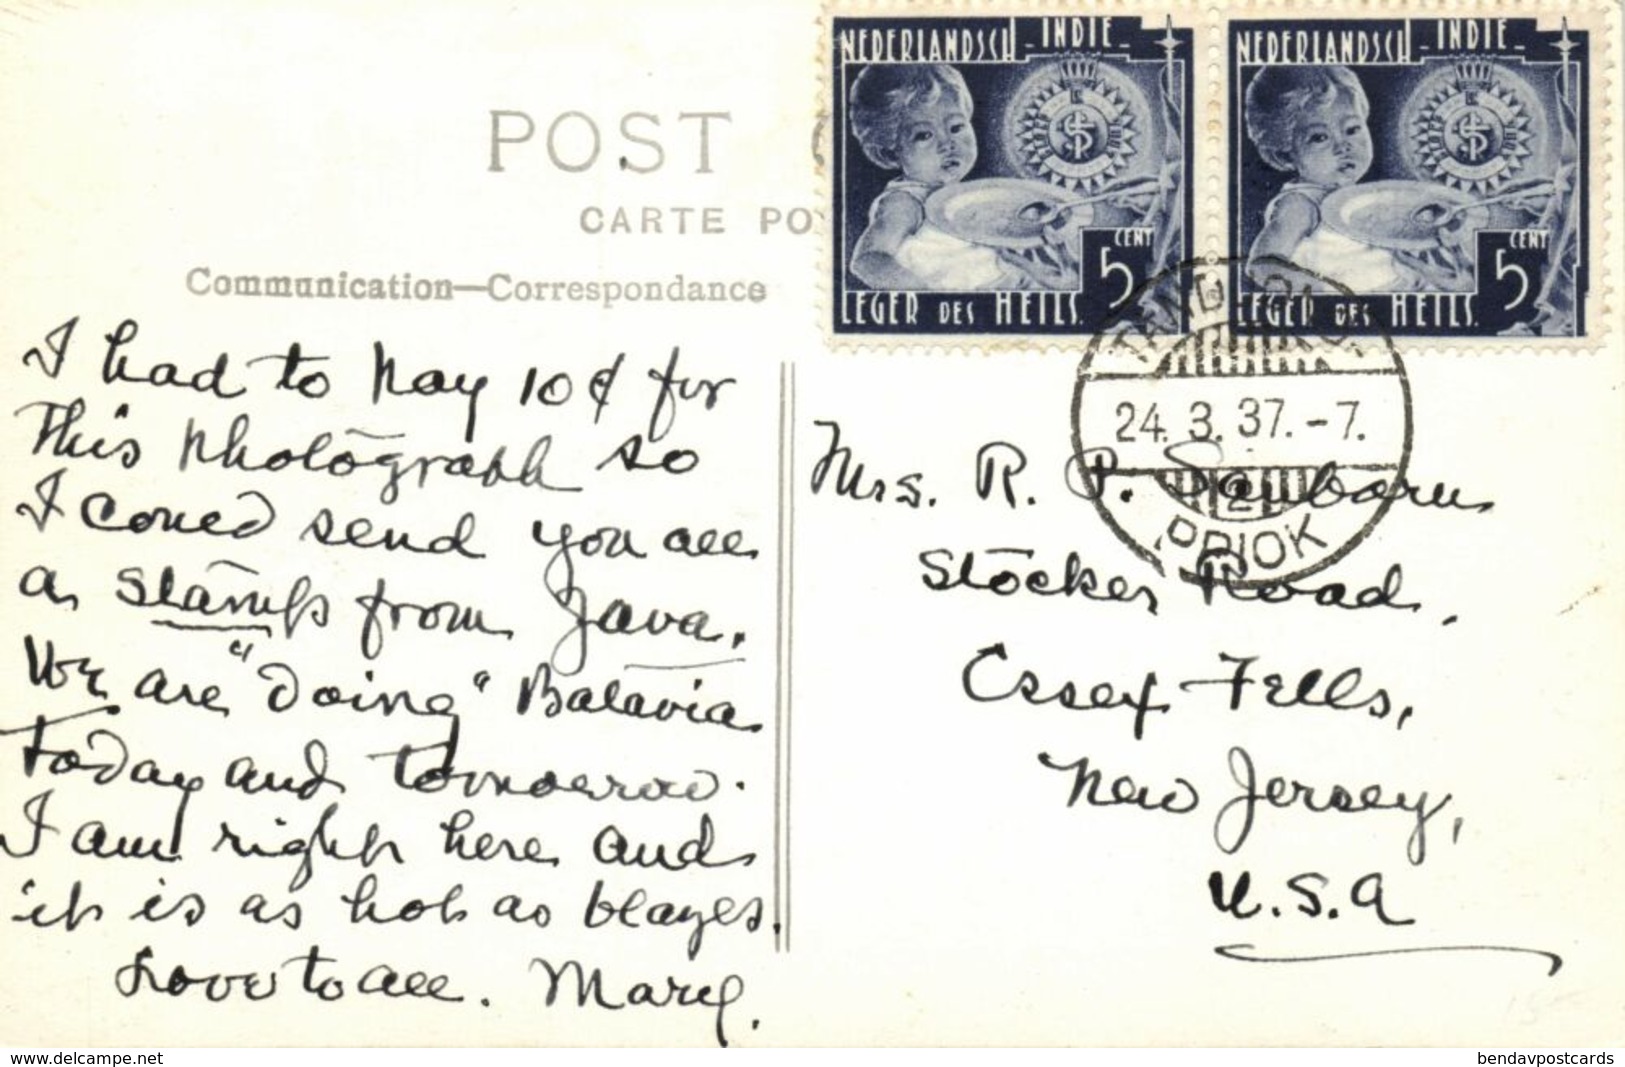 NEDERLANDSCH - INDIE -
5 CENT
LEGER DES HEILS.
NEDERLANDSCH - INDIE -
5 CENT
LEGER DES HEILS.
POST
CARTE PO
Communication—Correspondance
TANDJONG
24. 3. 37. - 7.
2
PRIOK
I had to pay 10¢ for
this photograph so
I could send you all
a stamps from Java.
We are "doing" Batavia
today and tomorrow.
I am right here and
it is as hot as blazes.
Love to all. Mary.
Mrs. R. P. Sanborn
Stocker Road,
Essex Fells,
New Jersey,
U.S.A
www.delcampe.net
bendavpostcards